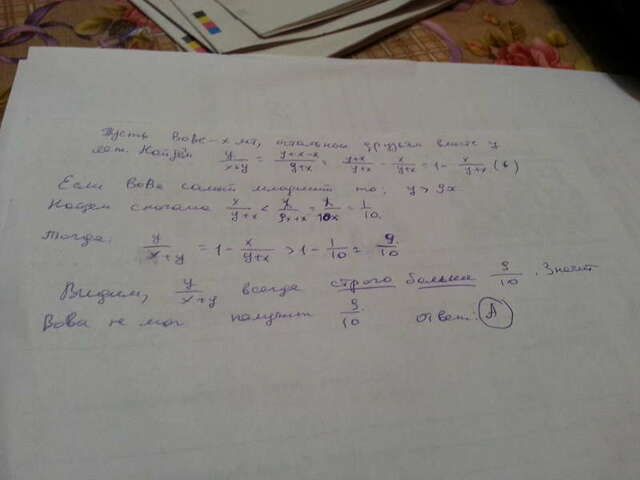 Пусть Вове - x лет, остальным друзьям вместе y
лет. Найдём y/(x+y) = (y+x-x)/(y+x) = (y+x)/(y+x) - x/(y+x) = 1 - x/(y+x)
Если Вова самый младший то: y > 9x
Найдем сначала x/(y+x) < x/(9x+x) = x/10x = 1/10.
Тогда: y/(x+y) = 1 - x/(y+x) > 1 - 1/10 = 9/10
Видим, y/(x+y) всегда строго больше 9/10. Значит
Вова не мог получить 9/10. Ответ: А